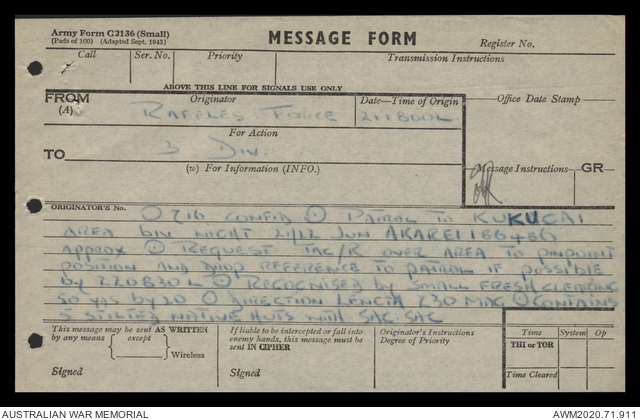 Army Form C2136 (Small)
(Pads of 100) (Adapted Sept. 1943)
MESSAGE FORM
Register No.
Call
Ser. No.
Priority
Transmission Instructions
ABOVE THIS LINE FOR SIGNALS USE ONLY
FROM
(A)
Originator
Date—Time of Origin
Office Date Stamp
RAFFLES FORCE
211800L
For Action
TO
3 DIV.
(w) For Information (INFO.)
Message Instructions
GR
ORIGINATOR'S No.
O 210 CONFD ⊙ PATROL TO KUKUCAI
AREA BIV NIGHT 21/22 JUN AKAREI 166486
APPROX ⊙ REQUEST TAC/R OVER AREA TO PINPOINT
POSITION AND DROP REFERENCE TO PATROL IF POSSIBLE
by 220830L ⊙ RECOGNISED by SMALL FRESH CLEARING
50 yds by 20 ⊙ DIRECTION LENGTH 230 MAG ⊙ CONTAINS
5 STILTED NATIVE HUTS WITH SAC-SAC
This message may be sent AS WRITTEN
by any means except
Wireless
Signed
If liable to be intercepted or fall into
enemy hands, this message must be
sent IN CIPHER
Signed
Originator's Instructions
Degree of Priority
Time
System
Op
THI or TOR
Time Cleared
AUSTRALIAN WAR MEMORIAL
AWM2020.71.911